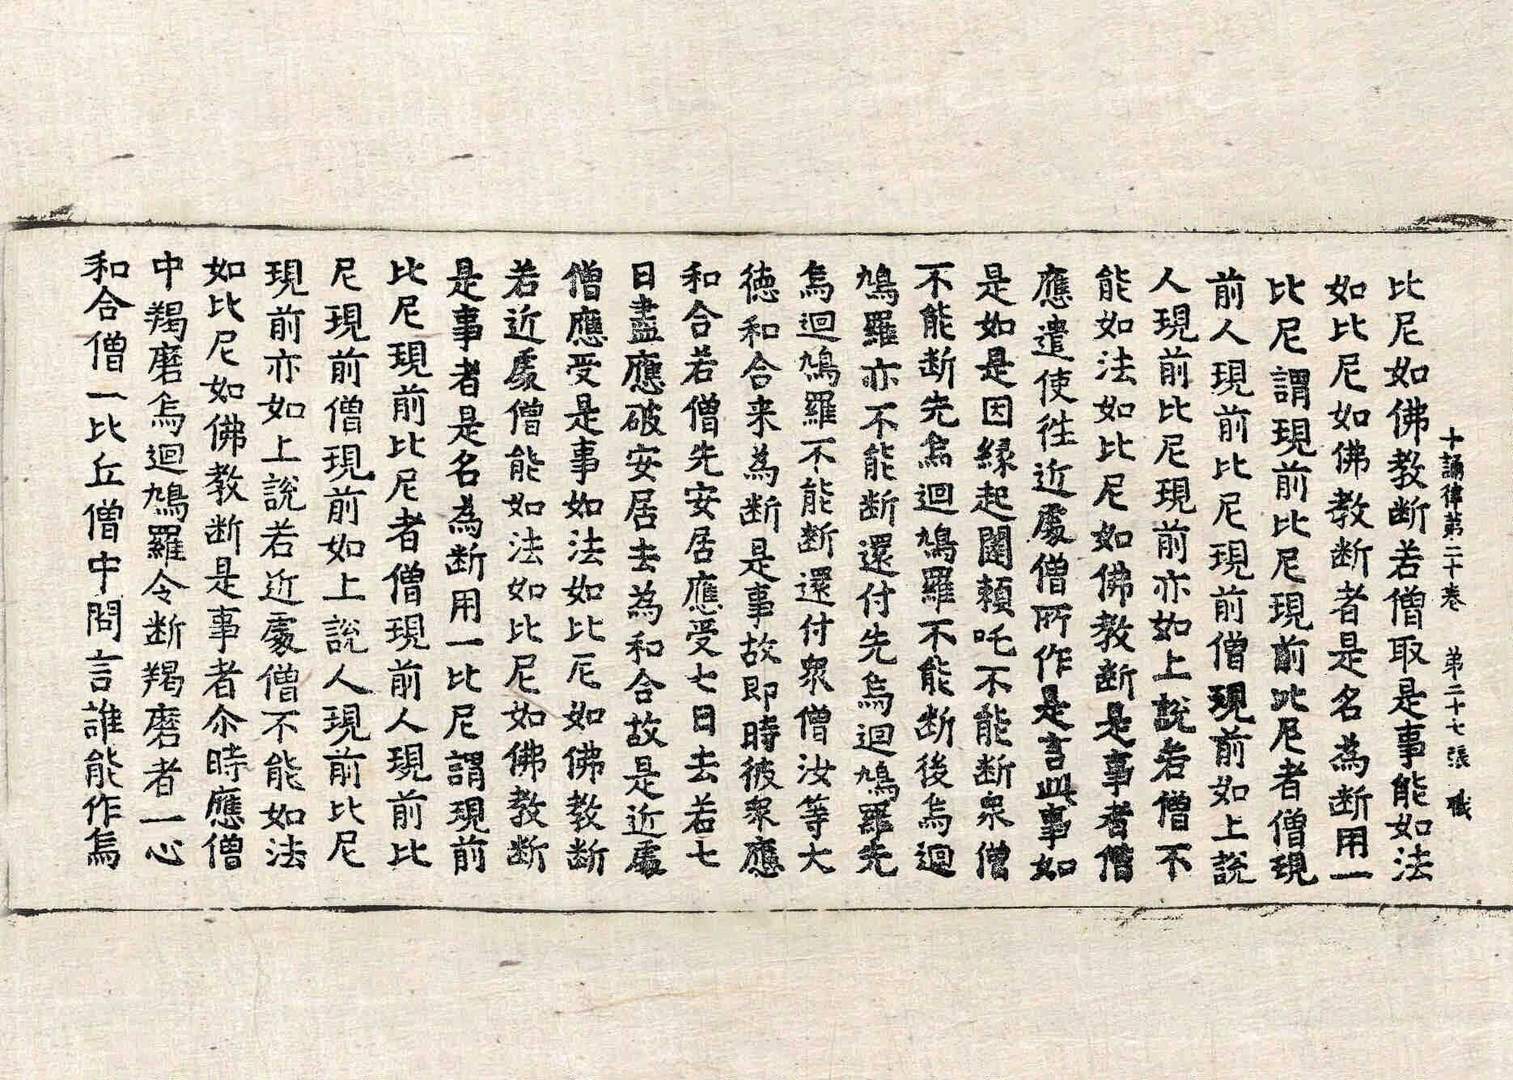 十誦律第二十卷　第二十七張　職
比尼如佛教断若僧取是事能如法
如比尼如佛教断者是名為断用一
比尼謂現前比尼現前比尼者僧現
前人現前比尼現前僧現前如上說
人現前比尼現前亦如上說若僧不
能如法如比尼如佛教断是事者僧
應遣使徃近處僧所作是言此事如
是如是因緣起闥頼吒不能断衆僧
不能断先烏迴鳩羅不能断後烏迴
鳩羅亦不能断還付先烏迴鳩羅先
烏迴鳩羅不能断還付衆僧汝等大
徳和合来為断是事故即時彼衆應
和合若僧先安居應受七日去若七
日盡應破安居去為和合故是近處
僧應受是事如法如比尼如佛教断
若近處僧能如法如比尼如佛教断
是事者是名為断用一比尼謂現前
比尼現前比尼者僧現前人現前比
尼現前僧現前如上說人現前比尼
現前亦如上說若近處僧不能如法
如比尼如佛教断是事者尒時應僧
中羯磨烏迴鳩羅令断羯磨者一心
和合僧一比丘僧中問言誰能作烏